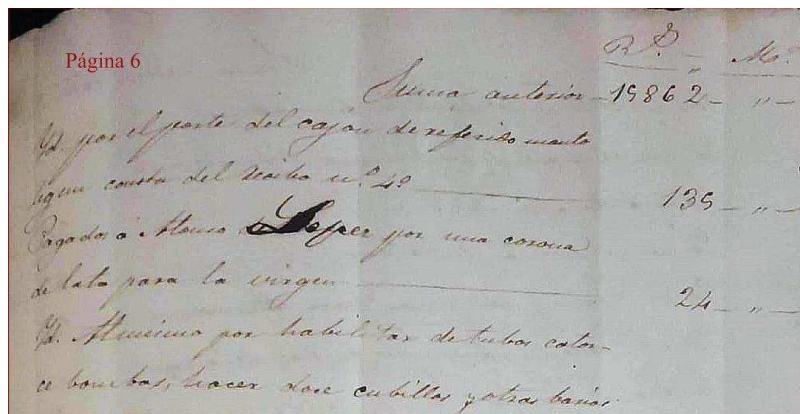 Página 6
Rs. Ms.
Suma anterior 19862 " 
Yd. por el porte del cajón de referido manto
segun consta del recibo nº 4º 135 "
Pagados á Alonso Lopez por una corona
de lata para la virgen 24 "
Yd. Al mismo por habilitar de tubos cator-
ce bombas, hacer doce cubillos y otras barias